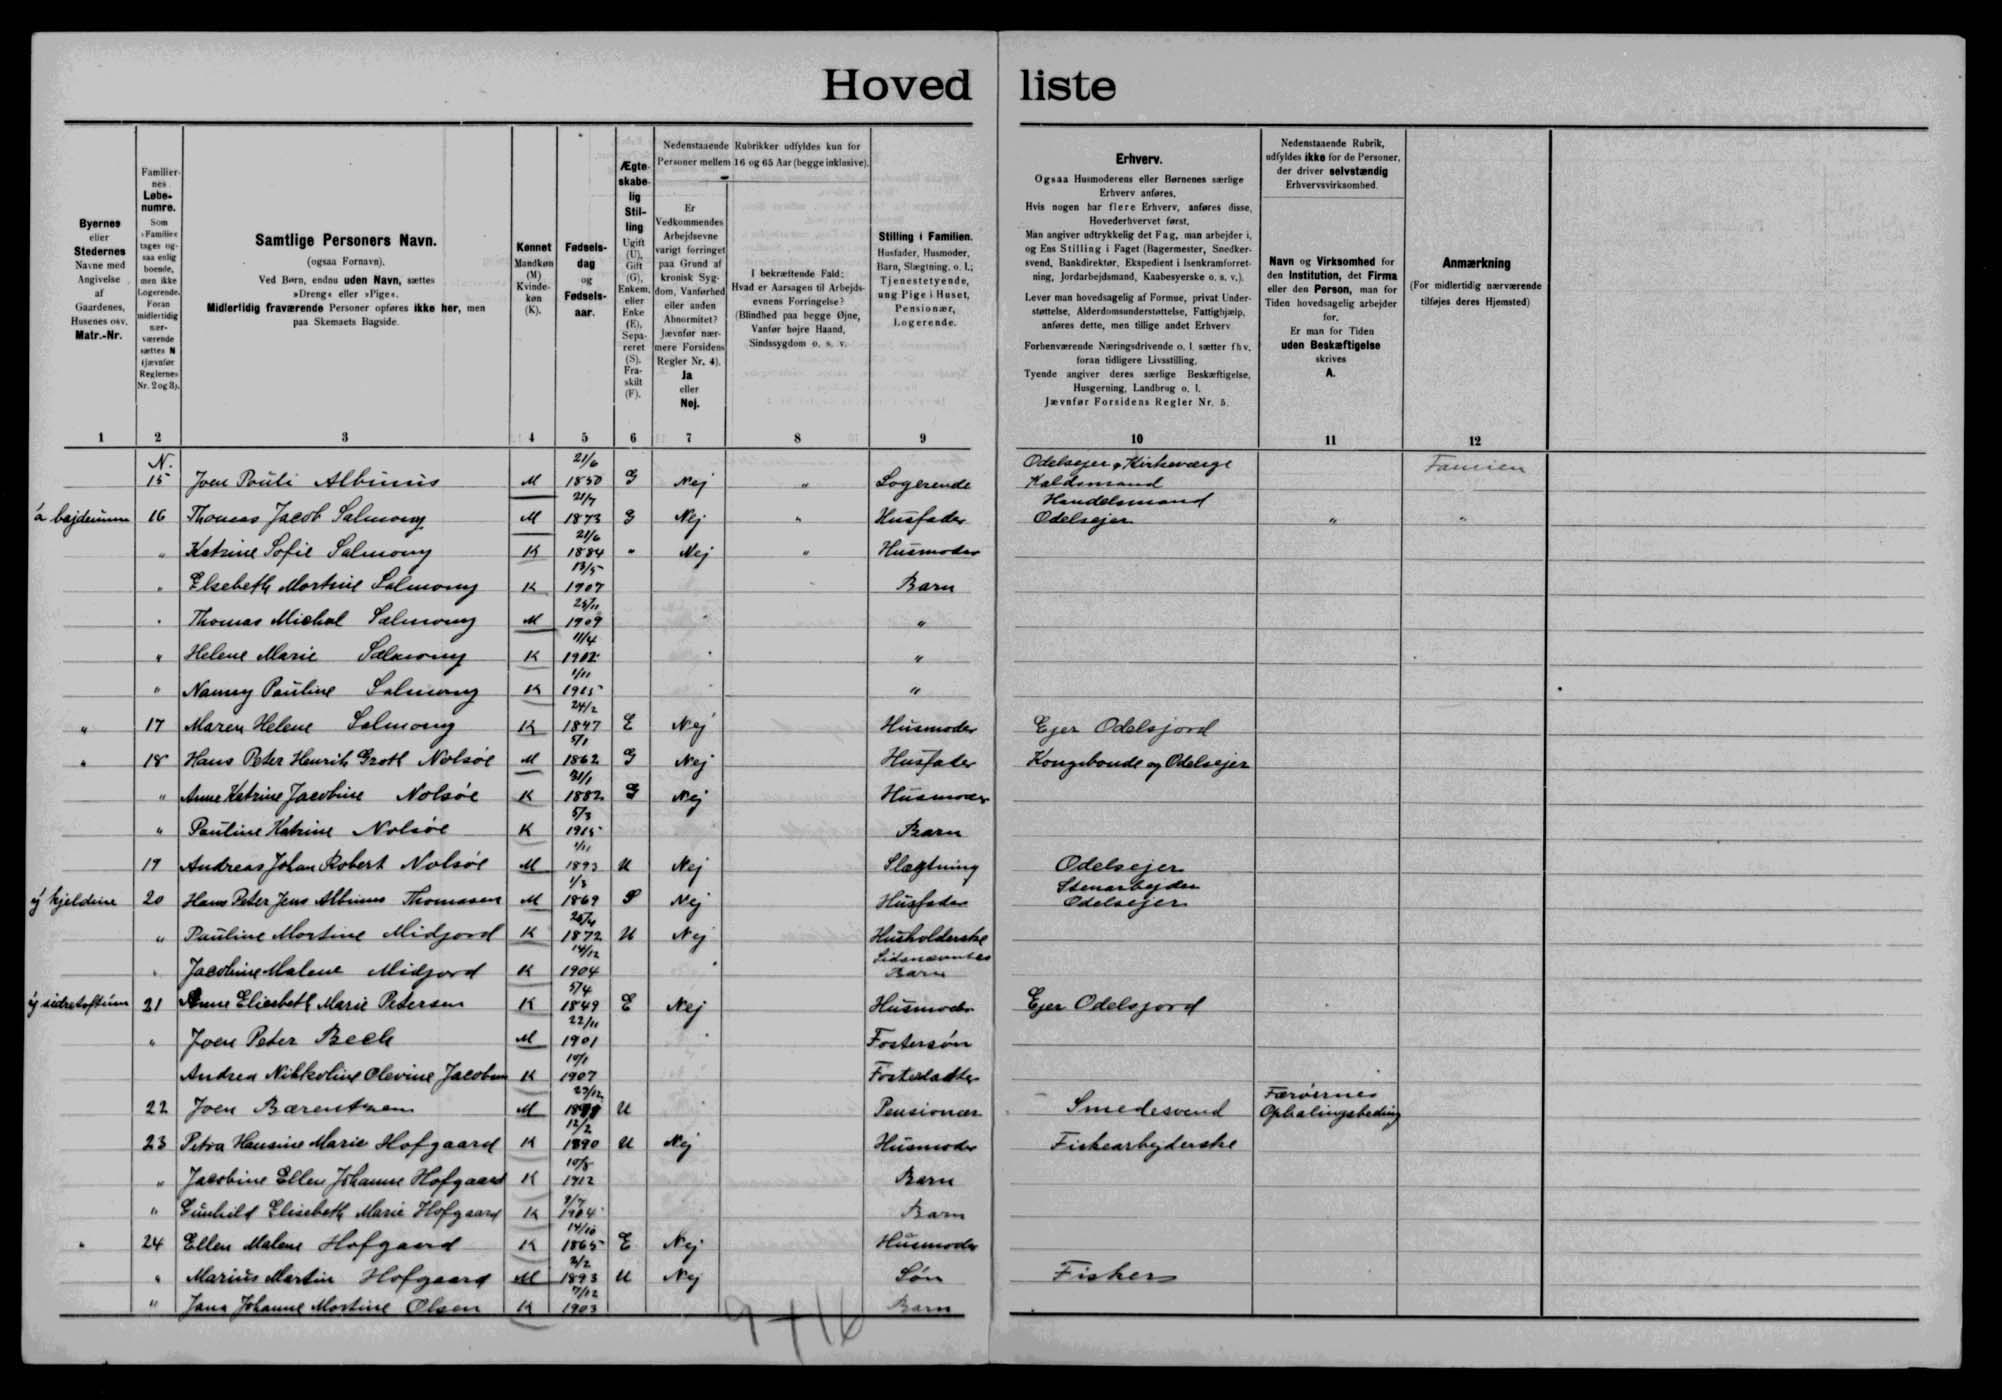 Hoved liste
Byernes eller Stedernes Navne med Angivelse af Gaardenes, Husenes osv. Matr.-Nr.
Familiernes Løbenumre. Som »Familie« tages ogsaa enlig boende, men ikke Logerende. Foran midlertidig nærværende sættes N (jævnfør Reglernes Nr. 2 og 3).
Samtlige Personers Navn.
(ogsaa Fornavn).
Ved Børn, endnu uden Navn, sættes
»Dreng« eller »Pige«.
Midlertidig fraværende Personer opføres ikke her, men
paa Skemaets Bagside.
Kønnet Mandkøn (M) Kvindekøn (K).
Fødselsdag og Fødselsaar.
Ægteskabelig Stilling Ugift (U), Gift (G), Enkem. eller Enke (E), Separeret (S). Fraskilt (F).
Nedenstaaende Rubrikker udfyldes kun for
Personer mellem 16 og 65 Aar (begge inklusive).
Er Vedkommendes Arbejdsevne varigt forringet paa Grund af kronisk Sygdom, Vanførhed eller anden Abnormitet? Jævnfør nærmere Forsidens Regler Nr. 4). Ja eller Nej.
I bekræftende Fald: Hvad er Aarsagen til Arbejdsevnens Forringelse? (Blindhed paa begge Øjne, Vanfør højre Haand, Sindssygdom o. s. v.
Stilling i Familien. Husfader, Husmoder, Barn, Slægtning. o. l.; Tjenestetyende, ung Pige i Huset, Pensionær, Logerende.
Erhverv.
Ogsaa Husmoderens eller Børnenes særlige
Erhverv anføres.
Hvis nogen har flere Erhverv, anføres disse,
Hovederhvervet først.
Man angiver udtrykkelig det Fag, man arbejder i,
og Ens Stilling i Faget (Bagermester, Snedker-
svend, Bankdirektør, Ekspedient i Isenkramforret-
ning, Jordarbejdsmand, Kaabesyerske o. s. v.).
Lever man hovedsagelig af Formue, privat Under-
støttelse, Alderdomsunderstøttelse, Fattighjælp,
anføres dette, men tillige andet Erhverv
Forhenværende Næringsdrivende o. l. sætter fhv.
foran tidligere Livsstilling.
Tyende angiver deres særlige Beskæftigelse,
Husgerning, Landbrug o. l.
Jævnfør Forsidens Regler Nr. 5.
Nedenstaaende Rubrik,
udfyldes ikke for de Personer,
der driver selvstændig
Erhvervsvirksomhed.
Navn og Virksomhed for
den Institution, det Firma
eller den Person, man for
Tiden hovedsagelig arbejder
for.
Er man for Tiden
uden Beskæftigelse
skrives
A.
Anmærkning
(For midlertidig nærværende
tilføjes deres Hjemsted)
1 2 3 4 5 6 7 8 9 10 11 12
N. 15 Joen Pouli Albinus M 21/6 1850 G Nej " Logerende Odelsejer, Kirkeværge Famien
16 Thomas Jacob Salmony M 21/7 1873 G Nej " Husfader Handelsmand Odelsejer " "
" Katrine Sofie Salmony K 21/6 1884 " Nej " Husmoder
" Elsebeth Mortine Salmony K 13/5 1907 Barn
" Thomas Michal Salmony M 25/11 1909 "
" Helene Marie Salmony K 11/4 1912 "
" Nanny Pauline Salmony K 1/11 1915 "
" 17 Maren Helene Salmony K 24/2 1847 E Nej Husmoder Ejer Odelsjord
" 18 Hans Peter Henrik Groth Nolsöe M 5/1 1862 G Nej Husfader Kongsbonde og Odelsejer
" Anne Katrine Jacobine Nolsöe K 31/1 1882 G Nej Husmoder
" Pauline Katrine Nolsöe K 5/3 1915 Barn
19 Andreas Johan Robert Nolsöe M 1/11 1893 U Nej Slægtning Odelsejer
20 Hans Peter Jens Albinus Thomasen M 1/3 1869 S Nej Husfader Stenarbejder Odelsejer
" Pauline Mortine Midjord K 1872 U Nej Husholderske
" Jacobine Malene Midjord K 14/12 1904 Sidsnævntes Barn
21 Anne Eliesbeth Marie Petersen K 5/4 1849 E Nej Husmoder Ejer Odelsjord
" Joen Peter Bech M 22/11 1901 Fostersön
Andrea Nikkoline Olevine Jacobsen K 10/1 1907 Fosterdatter
22 Joen Bærentsen M 29/12 U Pensionær Smedesvend Færöernes Ophalingsbeding
23 Petra Hansine Marie Hofgaard K 12/2 1890 U Nej Husmoder Fiskearbejderske
" Jacobine Ellen Johanne Hofgaard K 10/8 1912 Barn
" Gunhild Elisebeth Marie Hofgaard K Barn
" 24 Ellen Malene Hofgaard K 14/10 1865 E Nej Husmoder
" Marius Martin Hofgaard M 2/2 1893 U Nej Sön Fisker
" Jana Johanne Mortine Olsen K 7/12 1903 Barn
9+16